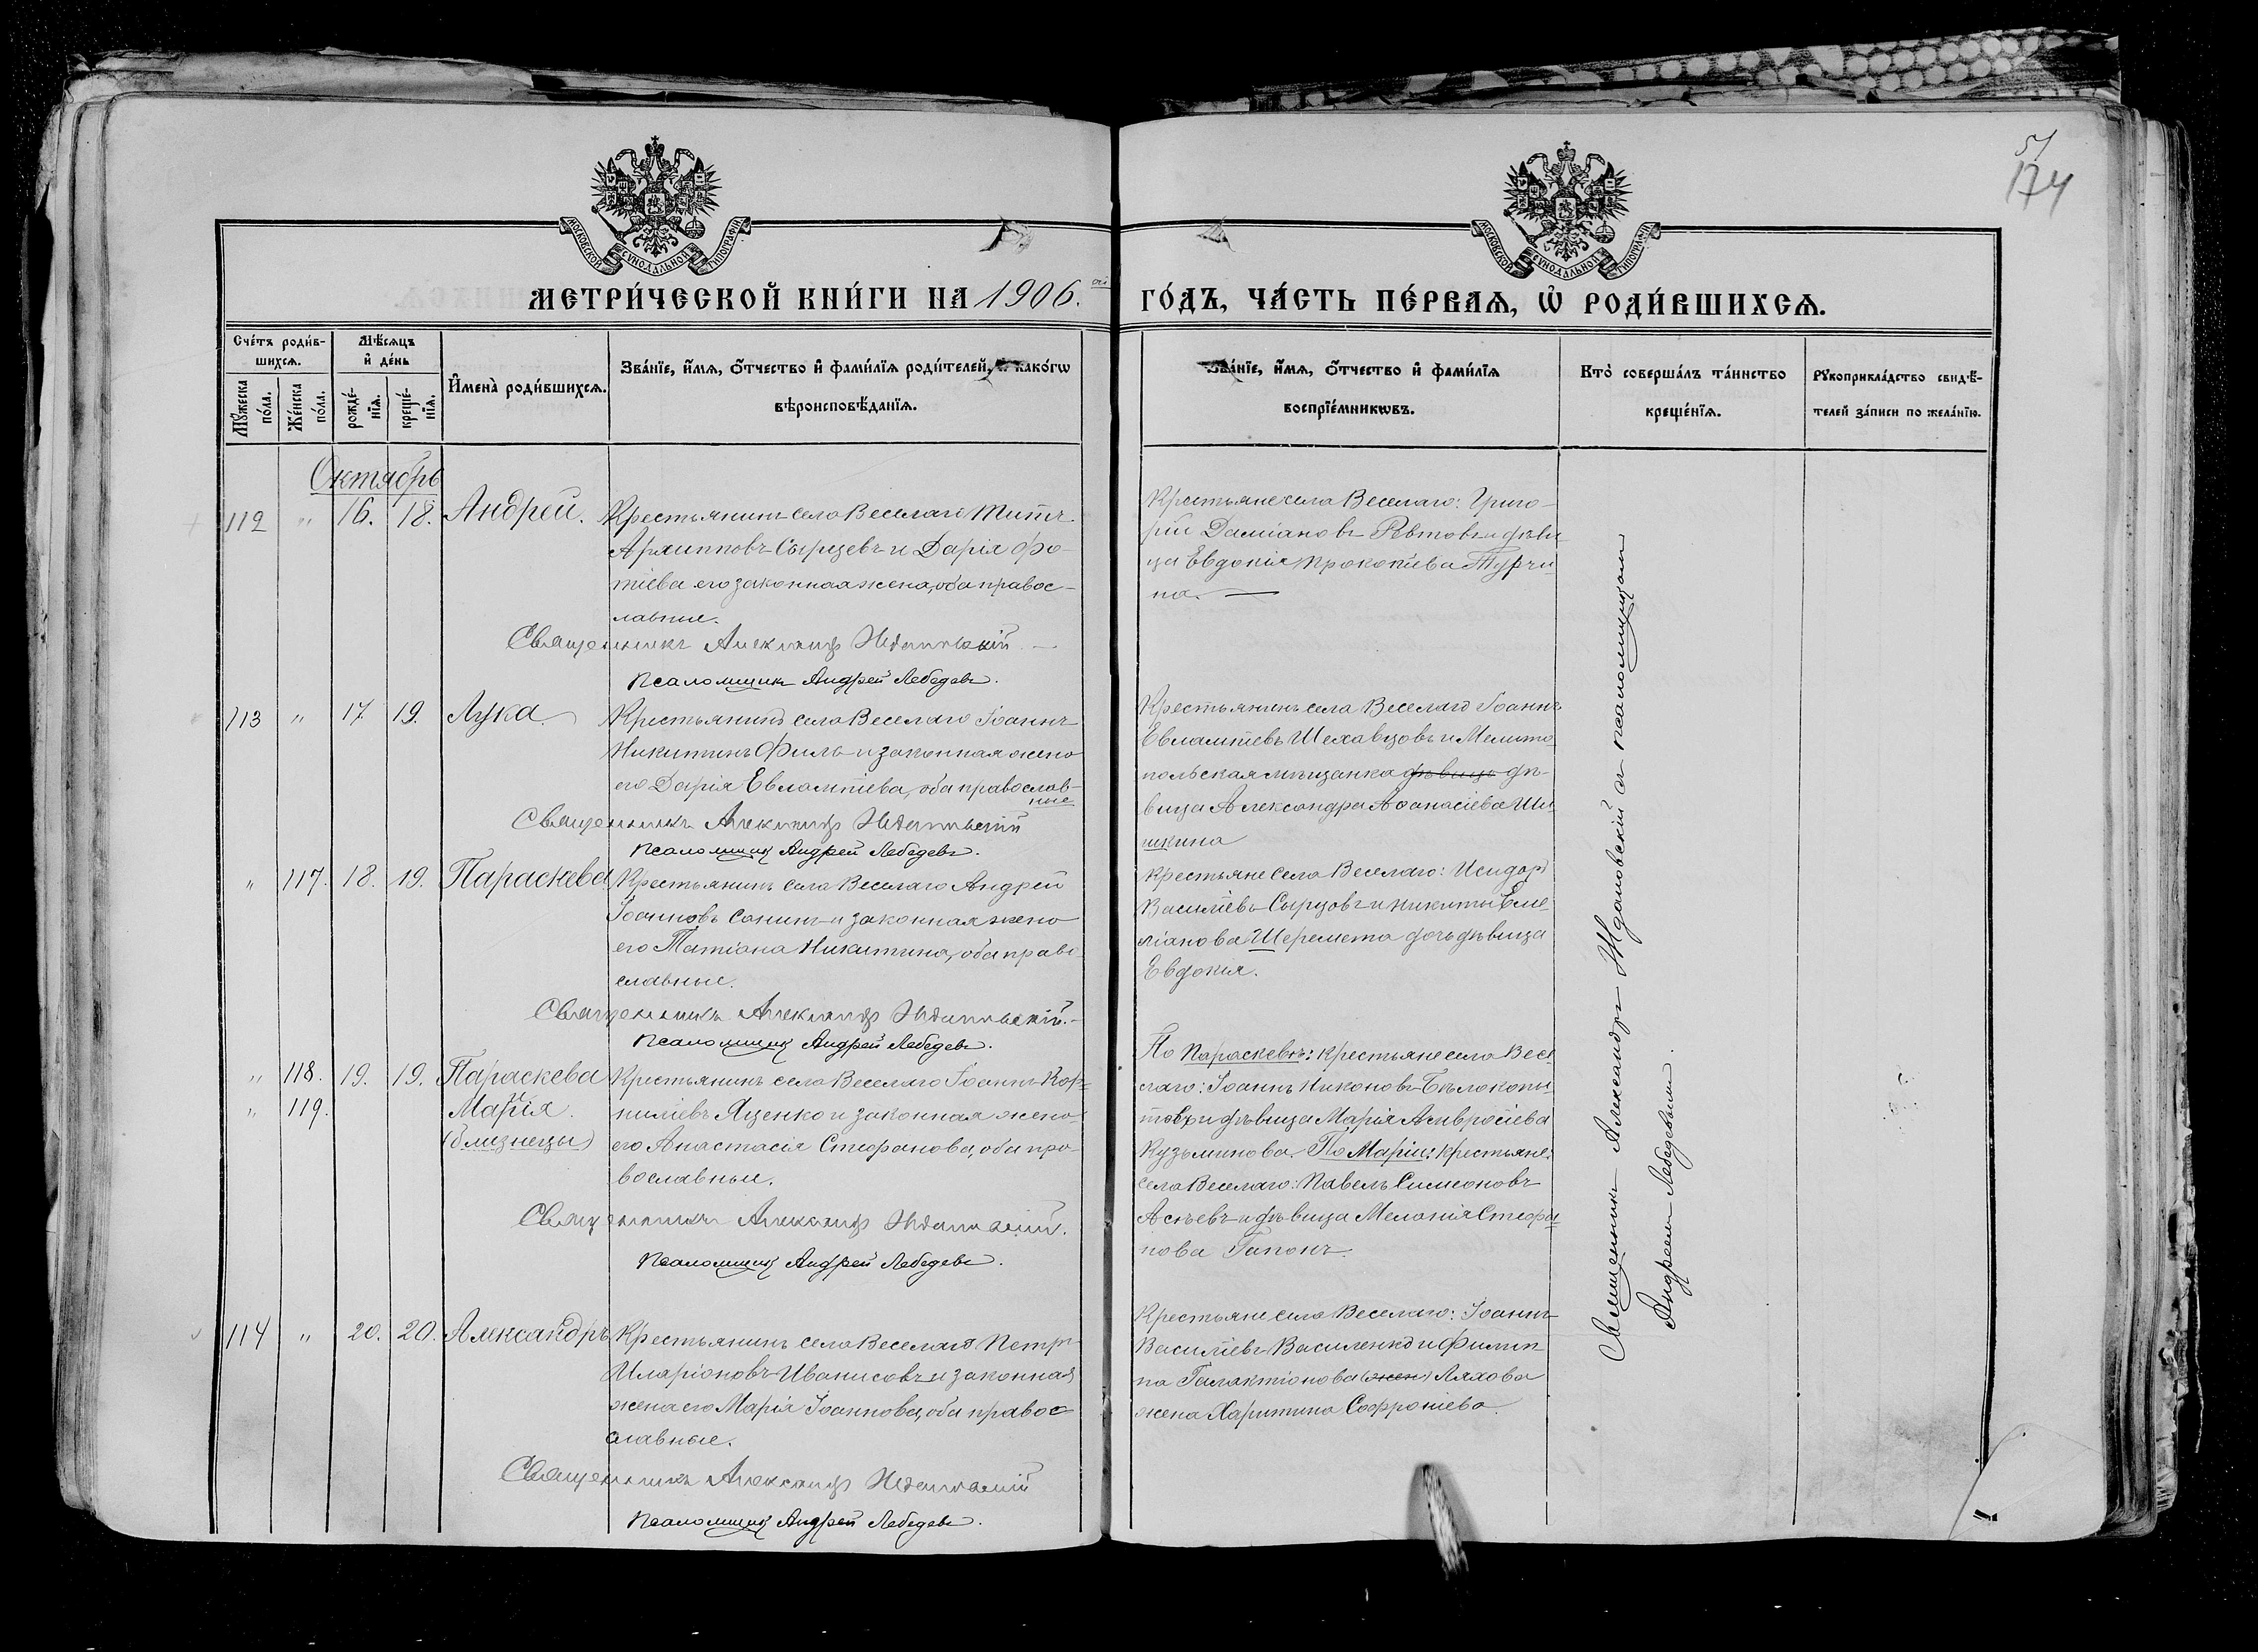 51
174
МОСКОВСКОЙ СУНОДАЛЬНОЙ ТИПОГРАФІИ
МОСКОВСКОЙ СУНОДАЛЬНОЙ ТИПОГРАФІИ
МЕТРИ́ЧЕСКОЙ КНИ́ГИ НА 1906.ой ГО́ДЪ, ЧА́СТЬ ПЕ́РВАѦ, Ѡ РОДИ́ВШИХСѦ.
Сче́тъ роди́в-
шихсѧ.
Мѣ́сяцъ
и де́нь
Мꙋжеска по́ла.
Же́нска по́ла.
рожде́-
нїѧ.
креще́-
нїѧ.
Имена̀ роди́вшихсѧ.
Зва́нїе, и́мѧ, о́тчество и фами́лїѧ роди́телей, и како́гѡ
вѣроисповѣ́данїѧ.
Зва́нїе, и́мѧ, о́тчество и фами́лїѧ
воспрїе́мникѡвъ.
Кто̀ соверша́лъ та́инство
креще́нїѧ.
Рꙋкоприкла́дство свидѣ́-
телей за́писи по жела́нїю.
Октябрь
112 " 16. 18. Андрей. Крестьянинъ села Веселаго Титъ
Архипповъ Сырцевъ и Дарія Фо-
тіева его законная жена, оба правос-
лавные.
Священникъ Александр Ждановский
Псаломщик Андрей Лебедевъ.
Крестьяне села Веселаго: Григо-
рій Даміановъ Ревтовъ и дѣви-
ца Евдокія Прокопіева Турчи-
на.
113 " 17 19. Лука. Крестьянинъ села Веселаго Іоаннъ
Никитинъ Филь и законная жена
его Дарія Евлампіева, оба православ-
ные
Священникъ Александр Ждановский
Псаломщик Андрей Лебедевъ.
Крестьянинъ села Веселаго Іоаннъ
Евлампіевъ Шехавцовъ и Мелито-
польская мѣщанка дѣвица дѣ-
вица Александра Аѳанасіева Ши-
шкина
" 117. 18. 19. Параскева Крестьянинъ села Веселаго Андрей
Іоанновъ Санинъ и законная жена
его Татіана Никитина, оба право-
славные.
Священникъ Александр Ждановский.
Псаломщик Андрей Лебедевъ.
Крестьяне села Веселаго: Исидоръ
Василіевъ Сырцовъ и Никиты Еме-
ліанова Шеремета дочь дѣвица
Евдокія.
" 118. 19. 19. Параскева Крестьянинъ села Веселаго Іоаннъ Кор-
" 119. Марія. ниліевъ Яценко и законная жена
(близнецы) его Анастасія Стефанова, оба пра-
вославные.
Священникъ Александр Ждановский.
Псаломщик Андрей Лебедевъ.
По Параскевѣ: крестьяне села Весе-
лаго: Іоаннъ Никоновъ Бѣлокопы-
товъ и дѣвица Марія Амвросіева
Кузьминова. По Маріи: крестьяне
села Веселаго: Павелъ Симеоновъ
Асѣевъ и дѣвица Меланія Стефа-
нова Гапонъ.
114 " 20. 20. Александръ Крестьянинъ села Веселаго Петръ
Иларіоновъ Иванисовъ и законная
жена его Марія Іоаннова, оба правос
славные.
Священникъ Александр Ждановский
Псаломщик Андрей Лебедевъ.
Крестьяне села Веселаго: Іоаннъ
Василіевъ Василенко и Филип-
па Галактіонова (жен) Ляхова
жена Харитина Софроніева.
Священникъ Александръ Ждановскій съ псаломщикомъ
Андреемъ Лебедевымъ.